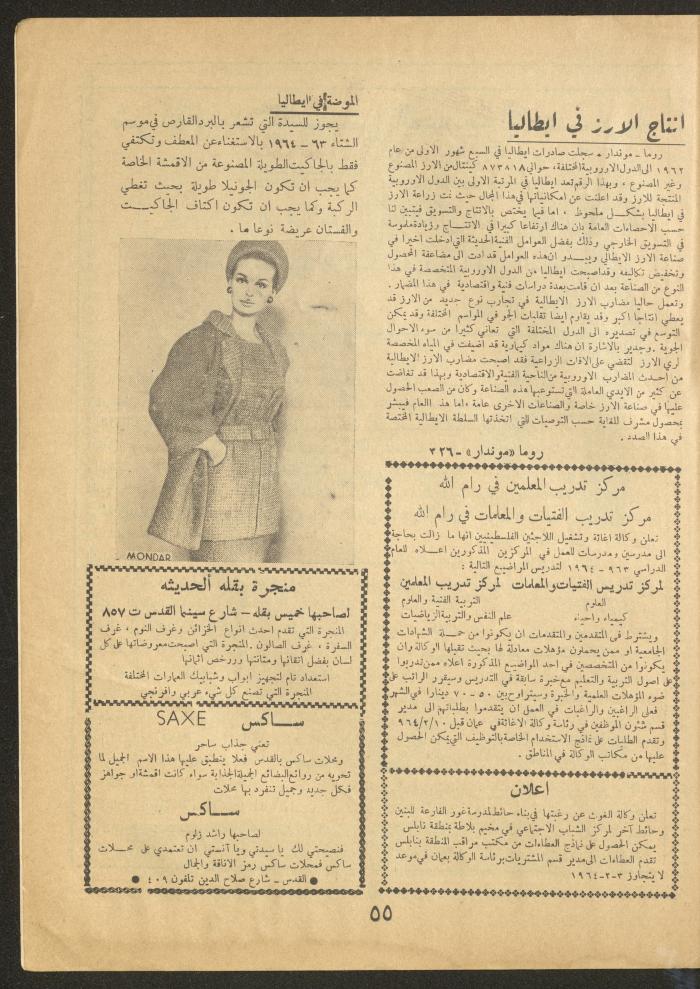 انتاج الارز في ايطاليا
روما - موندار - سجلت صادرات ايطاليا في السبع شهور الاولى من عام
١٩٦٢ الى الدول الاوروبية المختلفة، حوالي ٨٧٣٨١٨ كينتال من الارز المصنوع
وغير المصنوع ، وبهذا الرقم تعد ايطاليا في المرتبة الاولى بين الدول الاوروبية
المنتجة للارز وقد اعلنت عن امكانياتها في هذا المجال حيث نت زراعة الارز
في ايطاليا بشكل ملحوظ ، اما فيما يختص بالانتاج والتسويق فيتبين لنا
حسب الاحصاءات العامة بان هناك ارتفاعا كبيرا في الانتاج وزيادة ملموسة
في التسويق الخارجي وذلك بفضل العوامل الفنية الحديثة التي ادخلت اخيرا في
صناعة الارز الايطالي ويبدو ان هذه العوامل قد ادت الى مضاعفة المحصول
وتخفيض تكاليفه وقد اصبحت ايطاليا من الدول الاوروبية المتخصصة في هذا
النوع من الصناعة بعد ان قامت بعدة دراسات فنية واقتصادية في هذا المضمار .
وتعمل حاليا مضارب الارز الايطالية في تجارب نوع جديد من الارز قد
يعطي انتاجا اكبر وقد يقاوم ايضا تقلبات الجو في المواسم المختلفة وقد يمكن
التوسع في تصديره الى الدول المختلفة التي تعاني كثيرا من سوء الاحوال
الجوية . وجدير بالاشارة ان هناك مواد كيماوية قد اضيفت في المياه المخصصة
لري الارز لتقضي على الافات الزراعية فقد اصبحت مضارب الارز الايطالية
من احدث المضارب الاوروبية من الناحية الفنية والاقتصادية وبهذا قد تغاضت
عن كثير من الايدي العاملة التي تستوعبها هذه الصناعة وكان من الصعب الحصول
عليها في صناعة الارز خاصة والصناعات الاخرى عامة ، اما هذا العام فيبشر
بمحصول مشرف للغاية حسب التوصيات التي اتخذتها السلطة الايطالية المختصة
في هذا الصدد .
روما «موندار» - ٣٢٦
مركز تدريب المعلمين في رام الله
مركز تدريب الفتيات والمعلمات في رام الله
تعلن وكالة اغاثة وتشغيل اللاجئين الفلسطينيين انها ما زالت بحاجة
الى مدرسين ومدرسات للعمل في المركزين المذكورين اعلاه للعام
الدراسي ٩٦٣ - ١٩٦٤ لتدريس المواضيع التالية :
لمركز تدريس الفتيات والمعلمات لمركز تدريب المعلمين
العلوم التربية الفنية والعلوم
كيمياء واحياء علم النفس والتربية الرياضيات
ويشترط في المتقدمين والمتقدمات ان يكونوا من حملة الشهادات
الجامعية او ممن يحملون مؤهلات معادلة لها بحيث تقبلها الوكالة وان
يكونوا من المتخصصين في احد المواضيع المذكورة اعلاه ممن تدربوا
على اصول التربية والتعليم مع خبرة سابقة في التدريس وسيقرر الراتب على
ضوء المؤهلات العلمية والخبرة وسيتراوح بين ٥٠ - ٧٠ دينارا في الشهر
فعلى الراغبين والراغبات في العمل ان يتقدموا بطلباتهم الى مدير
قسم شئون الموظفين في رئاسة وكالة الاغاثة في عمان قبل ٩٦٤/٢/١٠
وتقدم الطلبات على نماذج الاستخدام الخاصة بالتوظيف التي يمكن الحصول
عليها من مكاتب الوكالة في المناطق .
اعلان
تعلن وكالة الغوث عن رغبتها في بناء حائط لمدرسة غور الفارعة للبنين
وحائط آخر لمركز الشباب الاجتماعي في مخيم بلاطة بمنطقة نابلس
يمكن الحصول على نماذج العطاءات من مكتب مراقب المنطقة بنابلس
تقدم العطاءات الى مدير قسم المشتريات برئاسة الوكالة بعمان في موعد
لا يتجاوز ٣-٢-١٩٦٤
الموضة في ايطاليا
يجوز للسيدة التي تشعر بالبرد القارص في موسم
الشتاء ٦٣ - ١٩٦٤ بالاستغناء عن المعطف وتكتفي
فقط بالجاكيت الطويلة المصنوعة من الاقمشة الخاصة
كما يجب ان تكون الجونيلا طويلة بحيث تغطي
الركبة وكما يجب ان تكون اكتاف الجاكيت
والفستان عريضة نوعا ما .
MONDAR
منجرة بقله الحديثه
لصاحبها خميس بقله - شارع سينما القدس ت ٨٥٧
المنجرة التي تقدم احدث انواع الخزائن وغرف النوم ، غرف
السفرة ، غرف الصالون . المنجرة التي اصبحت معروضاتها على كل
لسان بفضل اتقانها ومتانتها ورخص اثمانها
استعداد تام لتجهيز ابواب وشبابيك العمارات المختلفة
المنجرة التي تصنع كل شيء عربي وافرنجي
ساكس SAXE
تعني جذاب ساحر
ومحلات ساكس بالقدس فعلا ينطبق عليها هذا الاسم الجميل لما
تحويه من روائع البضائع الجميلة الجذابة سواء كانت اقمشة او جواهز
فكل جديد وجميل تنفرد بها محلات
ساكس
لصاحبها راشد زلوم
فنصيحتي لك يا سيدتي ويا آنستي ان تعتمدي على محلات
ساكس فمحلات ساكس رمز الاناقة والجمال
● القدس - شارع صلاح الدين تلفون ٤٠٩ ●
٥٥